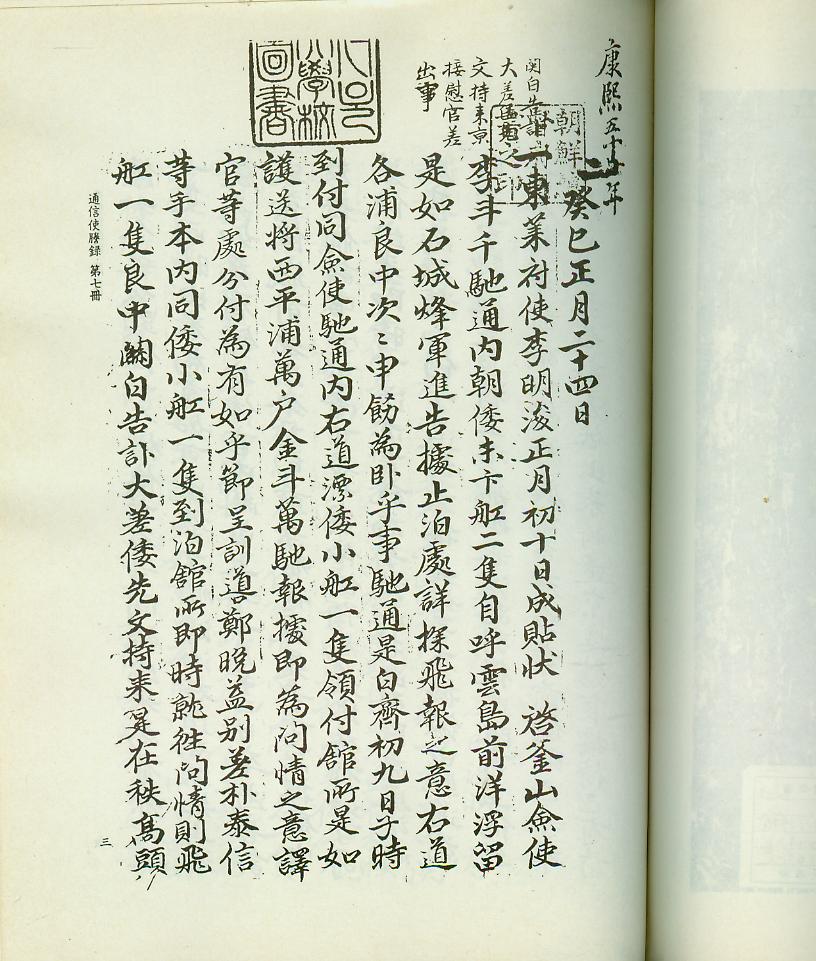 康熙五十二年
関白告訃
大差倭先
文持来京
接慰官差
出事
癸巳正月二十四日
一東萊府使李明浚正月初十日成貼狀 啓釜山僉使
李斗千馳通内朝倭未卞舡二隻自呼雲島前洋浮留
是如石城烽軍進告據止泊處詳探飛報之意右道
各浦良中次〻申飭為卧乎事馳通是白齊初九日子時
到付同僉使馳通内右道漂倭小舡一隻領付館所是如
護送將西平浦萬户金斗萬馳報據即為問情之意譯
官等處分付為有如乎節呈訓導鄭晚益别差朴泰信
等手本内同倭小舡一隻到泊館所即時就徃問情則飛
舡一隻良中関白告訃大差倭先文持来是在秩髙頭
朝鮮
圖書
通信使謄録 第七冊
三